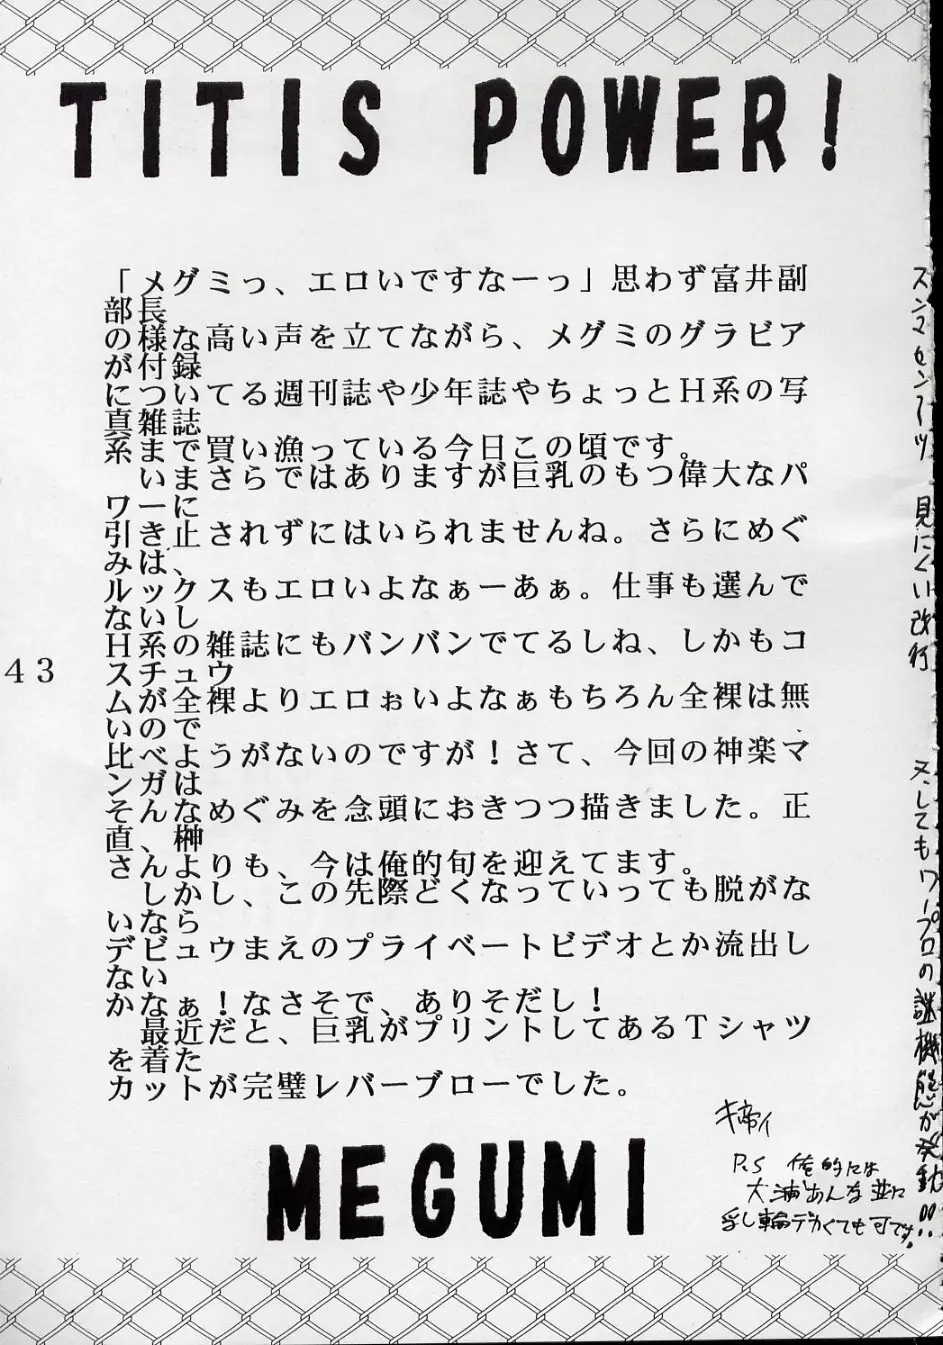 TITIS POWER!
「メグミっ、エロいですなーっ」思わず富井副
部長
の様な高い声を立てながら、メグミのグラビア
が付録
についてる週刊誌や少年誌やちょっとH系の写
真雑誌
系まで買い漁っている今日この頃です。
いまさらではありますが巨乳のもつ偉大なパ
ワーに
引き止されずにはいられませんね。さらにめぐ
みは、
ルックスもエロいよなぁーあぁ。仕事も選んで
ないし
H系の雑誌にもバンバンでてるしね、しかもコ
スチュウ
ムが全裸よりエロぉいよなぁもちろん全裸は無
いので
比べようがないのですが!さて、今回の神楽マ
ンガは
そんなめぐみを念頭におきつつ描きました。正
直、榊
さんよりも、今は俺的旬を迎えてます。
しかし、この先際どくなっていっても脱がな
いなら
デビュウまえのプライベートビデオとか流出し
ない
かなぁ!なさそで、ありそだし!
最近だと、巨乳がプリントしてあるTシャツ
を着た
カットが完璧レバーブローでした。
P.S 俺的には
大浦あんな並に
乳し輪デカくても可です。
MEGUMI
43
スンマセンアーツ 見にくい改行
又してもワープロの謎機能が発動!!